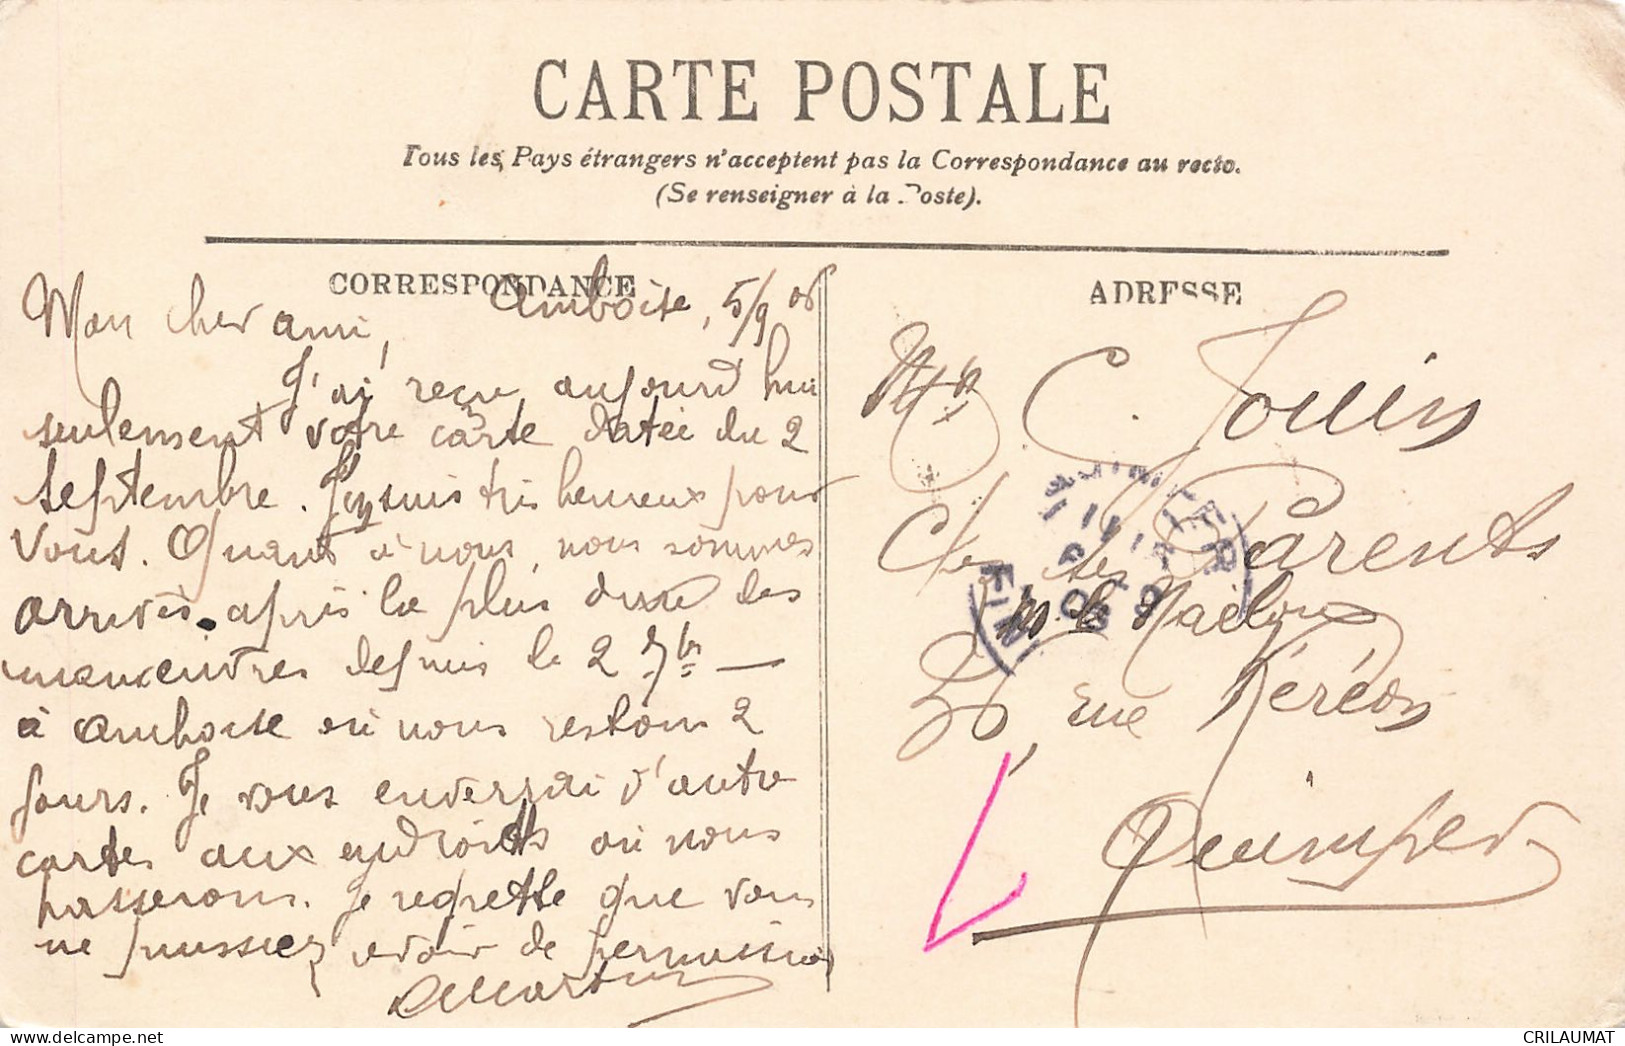 CARTE POSTALE
Tous les Pays étrangers n'acceptent pas la Correspondance au recto.
(Se renseigner à la Poste).
CORRESPONDANCE
Amboise, 5/9 06
Mon cher ami,
J'ai reçu aujourd'hui
seulement votre carte datée du 2
septembre. J'en suis très heureux pour
vous. Quant à nous, nous sommes
arrivés après la plus dure des
manœuvres depuis le 2 7bre
à Amboise où nous restons 2
jours. Je vous enverrai d'autres
cartes aux endroits où nous
passerons. Je regrette que vous
ne puissiez avoir de permission
Martin
ADRESSE
Mr C. Jouin
Chez ses Parents
rue Kéréon
Quimper
QUIMPER
FIN
CRILAUMAT